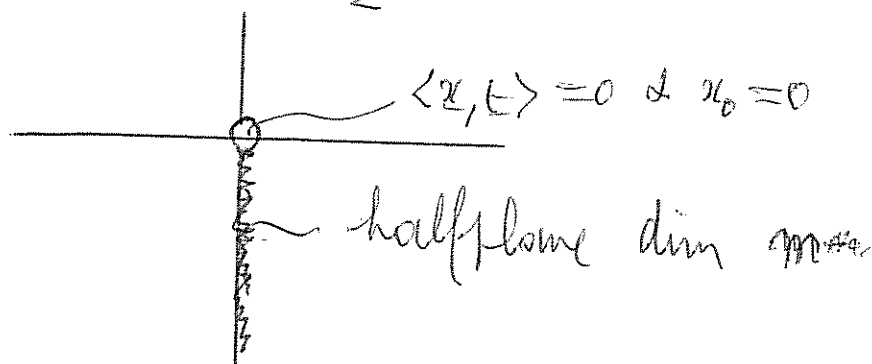 <x, t> = 0 & x₀ = 0
halfplane dim m